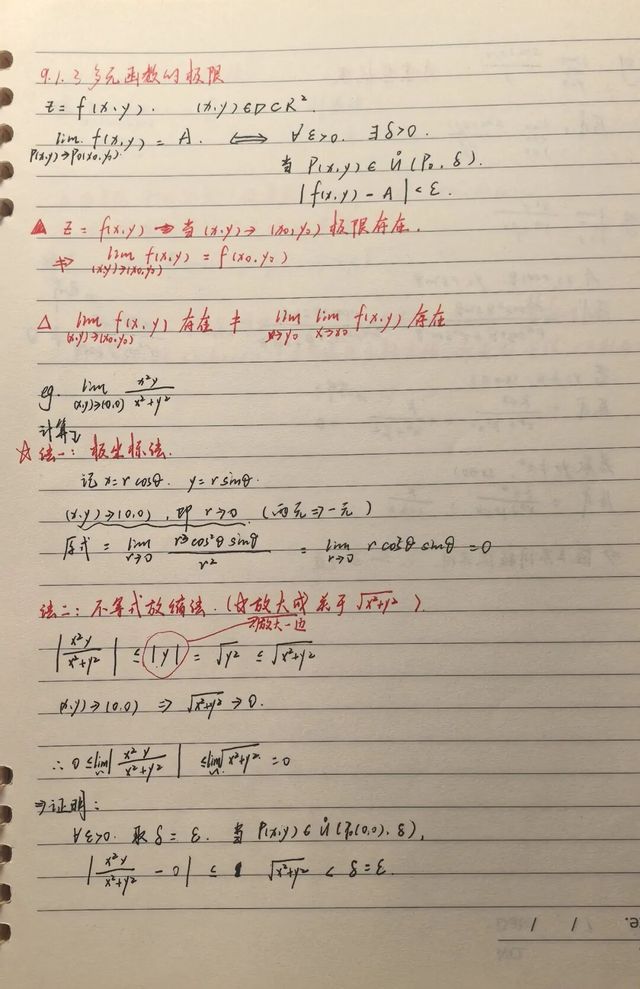 9.1.3 多元函数的极限
z = f(x,y). (x,y)∈D⊂R².
lim f(x,y) = A. ⟺ ∀ε>0. ∃δ>0.
P(x,y)→P₀(x₀,y₀)
当 P(x,y)∈Ů(P₀,δ).
|f(x,y) - A| < ε.
▲ z = f(x,y) 当(x,y)→(x₀,y₀) 极限存在.
⇏ lim f(x,y) = f(x₀,y₀)
(x,y)→(x₀,y₀)
△ lim f(x,y) 存在 ≠ lim lim f(x,y) 存在
(x,y)→(x₀,y₀) y→y₀ x→x₀
eg. lim x²y/(x²+y²)
(x,y)→(0,0)
计算
☆ 法一: 极坐标法.
记 x=rcosθ. y=rsinθ.
(x,y)→(0,0), 即 r→0 (两元⇒一元)
原式 = lim r³cos²θsinθ/r² = lim rcos²θsinθ = 0
r→0 r→0
法二: 不等式放缩法. (☆放大成关于√(x²+y²)).
放大一边
|x²y/(x²+y²)| ≤ |y| = √y² ≤ √(x²+y²)
(x,y)→(0,0) ⇒ √(x²+y²) → 0.
∴ 0 ≤ lim|x²y/(x²+y²)| ≤ lim√(x²+y²) = 0
⇒证明:
∀ε>0. 取δ = ε. 当 P(x,y)∈Ů(P₀(0,0),δ),
|x²y/(x²+y²) - 0| ≤ √(x²+y²) < δ = ε.
/ /